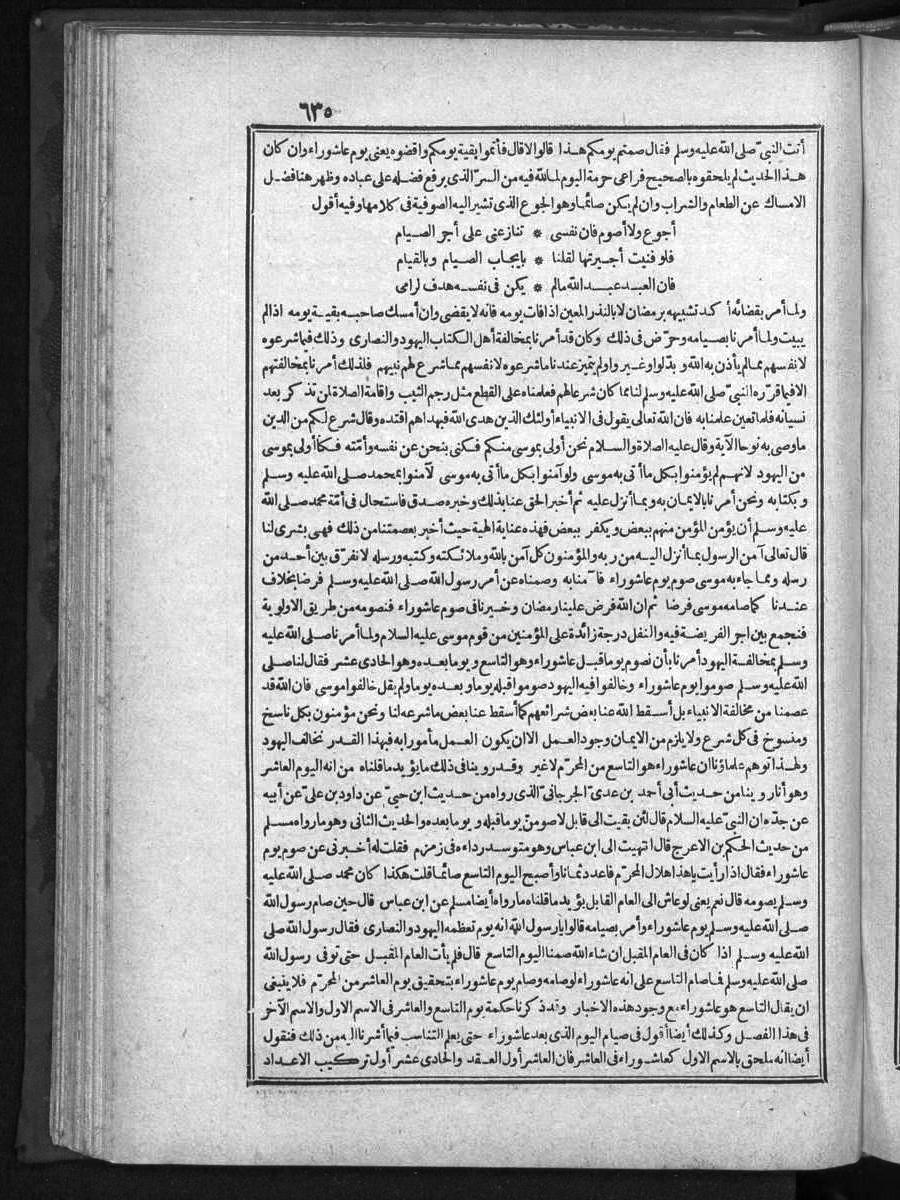 ٦٣٥
أتت النبيّ صلى الله عليه وسلم فقال صمتم يومكم هذا قالوا لا قال فأتموا بقية يومكم واقضوه يعنى يوم عاشوراء وان كان
هذا الحديث لم يلحقوه بالصحيح فراعى حرمة اليوم لما لله فيه من السرّ الذى يرفع فضله على عباده وظهر هنا فضل
الامساك عن الطعام والشراب وان لم يكن صائما وهو الجوع الذى تشير اليه الصوفية فى كلامها وفيه أقول
أجوع ولا أصوم فان نفسى * تنازعنى على أجر الصيام
فلو فنيت أجيرتها لقلنا * بايجاب الصيام وبالقيام
فان العبد عبد الله مالم * يكن فى نفسه هدف لرامى
ولما أمر بقضائه أكد تشبيهه برمضان لا بالنذر المعين اذا فات يومه فانه لا يقضى وان أمسك صاحبه بقية يومه اذا لم
يبيت ولما أمرنا بصيامه وحرّض فى ذلك وكان قد أمرنا بمخالفة أهل الكتاب اليهود والنصارى وذلك فيما شرعوه
لانفسهم مما لم يأذن به الله وبدّلوا وغيروا ولم يتميز عندنا ما شرعوه لانفسهم مما شرع لهم نبيهم فلذلك أمرنا بمخالفتهم
الا فيما قرّره النبيّ صلى الله عليه وسلم لنا مما كان شرعا لهم فعلمناه على القطع مثل رجم الثيب واقامة الصلاة لمن تذكر بعد
نسيانه فلما تعين علمنا به فان الله تعالى يقول فى الانبياء أولئك الذين هدى الله فبهداهم اقتده وقال شرع لكم من الدين
ما وصى به نوحا الآية وقال عليه الصلاة والسلام نحن أولى بموسى منكم فكنى بنحن عن نفسه وأمّته فكنا أولى بموسى
من اليهود لانهم لم يؤمنوا بكل ما أتى به موسى ولو آمنوا بكل ما أتى به موسى لآمنوا بمحمد صلى الله عليه وسلم
وبكتابه ونحن أمرنا بالايمان به وبما أنزل عليه ثم أخبر الحق عنا بذلك وخبره صدق فاستحال فى أمّة محمد صلى الله
عليه وسلم أن يؤمن المؤمن منهم ببعض ويكفر ببعض فهذه عناية الهية حيث أخبر بعصمتنا من ذلك فهى بشرى لنا
قال تعالى آمن الرسول بما أنزل اليه من ربه والمؤمنون كل آمن بالله وملائكته وكتبه ورسله لا نفرّق بين أحد من
رسله ومما جاء به موسى صوم يوم عاشوراء فآمنا به وصمناه عن أمر رسول الله صلى الله عليه وسلم فرضا بخلاف
عندنا كما صامه موسى فرضا ثم ان الله فرض علينا رمضان وخيرنا فى صوم عاشوراء فنصومه من طريق الاولوية
فنجمع بين اجر الفريضة فيه والنفل درجة زائدة على المؤمنين من قوم موسى عليه السلام ولما أمرنا صلى الله عليه
وسلم بمخالفة اليهود أمرنا بأن نصوم يوما قبل عاشوراء وهو التاسع ويوما بعده وهو الحادى عشر فقال لنا صلى
الله عليه وسلم صوموا يوم عاشوراء وخالفوا فيه اليهود صوموا قبله يوما وبعده يوما ولم يقل خالفوا موسى فان الله قد
عصمنا من مخالفة الانبياء بل أسقط الله عنا بعض شرائعهم كما أسقط عنا بعض ما شرعه لنا ونحن مؤمنون بكل ناسخ
ومنسوخ فى كل شرع ولا يلزم من الايمان وجود العمل الا ان يكون العمل مأمورا به فبهذا القدر نخالف اليهود
ولهذا توهم علماؤنا ان عاشوراء هو التاسع من المحرّم لا غير وقد روينا فى ذلك ما يؤيد ما قلناه من انه اليوم العاشر
وهو أنا روينا من حديث أبى أحمد بن عدىّ الجرجانىّ الذى رواه من حديث ابن حيىّ عن داود بن علىّ عن أبيه
عن جدّه ان النبىّ عليه السلام قال لئن بقيت الى قابل لاصومنّ يوما قبله ويوما بعده والحديث الثانى وهو ما رواه مسلم
من حديث الحكم بن الاعرج قال انتهيت الى ابن عباس وهو متوسد رداءه فى زمزم فقلت له أخبرنى عن صوم يوم
عاشوراء فقال اذا رأيت يا هذا هلال المحرّم فاعدد ثمانا وأصبح اليوم التاسع صائما قلت هكذا كان محمد صلى الله عليه
وسلم يصومه قال نعم يعنى لو عاش الى العام القابل يؤيد ما قلناه ما رواه أيضا مسلم عن ابن عباس قال حين صام رسول الله
صلى الله عليه وسلم يوم عاشوراء وأمر بصيامه قالوا يا رسول الله انه يوم تعظمه اليهود والنصارى فقال رسول الله صلى
الله عليه وسلم اذا كان فى العام المقبل ان شاء الله صمنا اليوم التاسع قال فلم يأت العام المقبل حتى توفى رسول الله
صلى الله عليه وسلم فما صام التاسع على انه عاشوراء لو صامه وصام يوم عاشوراء بتحقيق يوم العاشر من المحرّم فلا ينبغى
ان يقال التاسع هو عاشوراء مع وجود هذه الاخبار وقد ذكرنا حكمة يوم التاسع والعاشر فى الاسم الاول والاسم الآخر
فى هذا الفصل وكذلك أيضا أقول فى صيام اليوم الذى بعد عاشوراء حتى يعلم التناسب فيما أشرنا اليه من ذلك فنقول
أيضا انه ملحق بالاسم الاول كعاشوراء فى العاشر فان العاشر أول العقد والحادى عشر أول تركيب الاعداد